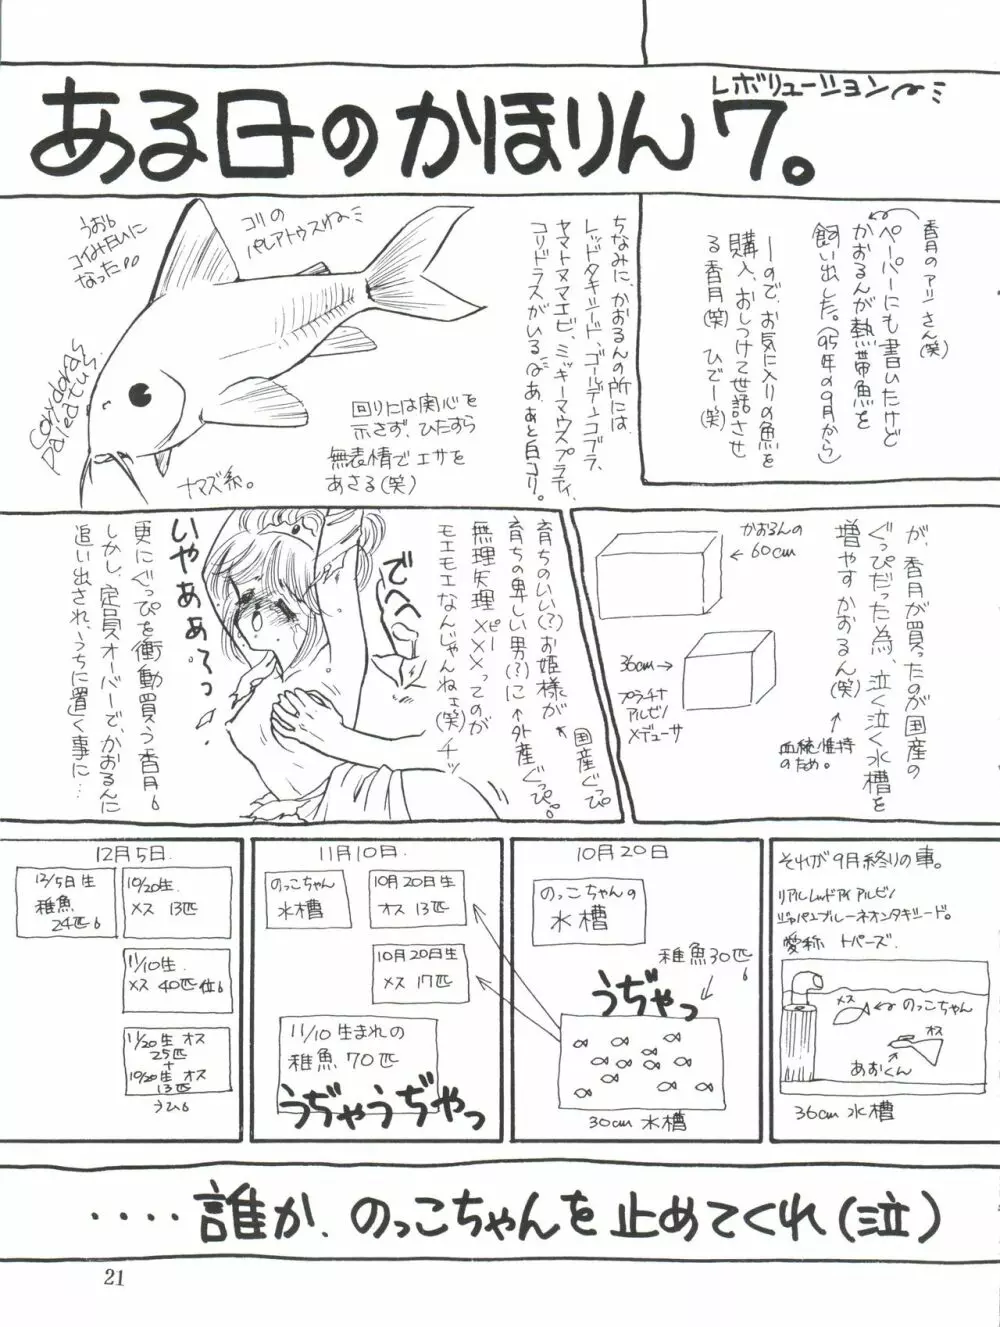 レボリューション
ある日のかほりん7。
香月のアツさん(笑)
ペーパーにも書いたけど
かおるんが熱帯魚を
飼い出した。('95年の9月から)
ーので、お気に入りの魚を
購入、おしつけて世話させ
る香月(笑) ひでー(笑)
ちなみに、かおるんの所には
レッドタキシード、ゴールデンコブラ、
ヤマトヌマエビ、ミッキーマウスプラティ、
コリドラスがいる あ、あと白コリ。
コリの
パレアトウスね
うおい
コイみたいに
なった
corydoras
paleatus.
回りには関心を
示さず、ひたすら
無表情でエサを
あさる(笑)
ナマズ系。
が、香月が買ったのが国産の
ぐっぴだった為、泣く泣く水槽を
増やすかおるん(笑)
血統維持
のため。
かおるんの
60cm
36cm
プラチナ
アルビノ
メデューサ
国産ぐっぴ
育ちのいい(?)お姫様が
育ちの卑しい男(?)に
外産ぐっぴ。
無理矢理×××ってのが
ピー
モエモエなんじゃんねェ(笑)チッ
でへへ
いやあぁっ
更にぐっぴを衝動買う香月
しかし、定員オーバーで、かおるんに
追い出され、うちに置く事に…
それが9月終りの事。
リアルレッドアイアルビノ
ジャパンブルーネオンタキシード。
愛称 トパーズ.
メス
のっこちゃん
オス
あおくん
36cm 水槽
10月20日
のっこちゃんの
水槽
稚魚30匹
うぢゃっ
30cm 水槽
11月10日.
のっこちゃん
水槽
10月20日生
オス 13匹
10月20日生
メス 17匹
11/10 生まれの
稚魚 70匹
うぢゃうぢゃっ
12月5日.
12/5日生
稚魚
24匹
10/20生.
メス 13匹
11/10生.
メス 40匹位
11/20生 オス
25匹
+
10/20生 オス
13匹
‥‥誰か、のっこちゃんを止めてくれ(泣)
21